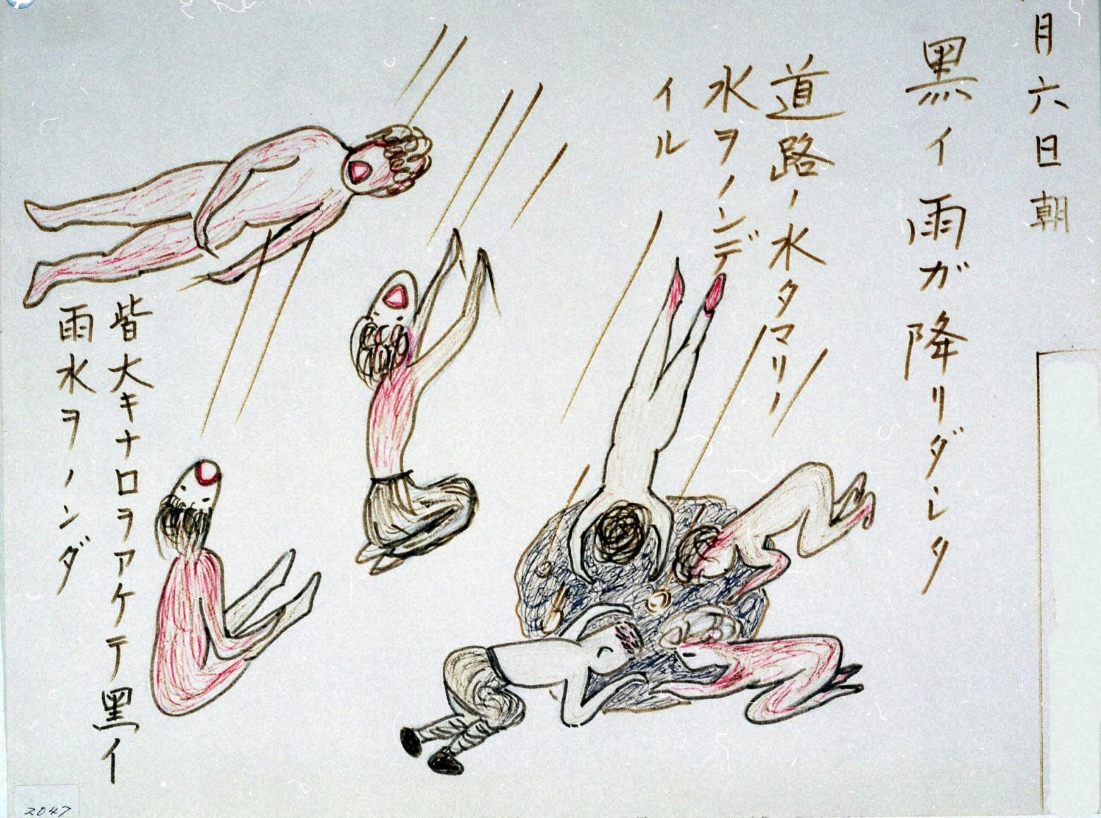 月六日朝
黒イ雨ガ降リダシタ
道路ノ水タマリノ
水ヲノンデ
イル
皆大キナ口ヲアケテ黒イ
雨水ヲノンダ
2047